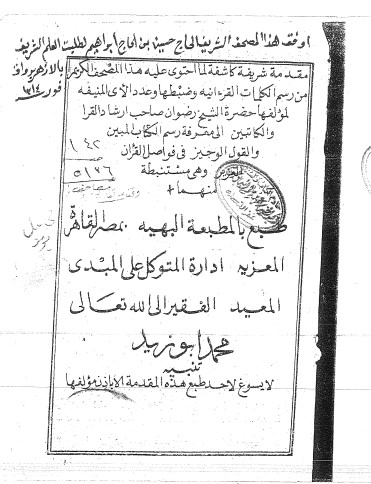 اوقف هذا المصحف الشريف الحاج حسين بن الحاج ابراهيم لطلبت العلم الشريف
بالازهر
١٣١٤
مقدمة شريفة كاشفة لما احتوى عليه هذا المصحف الكريم
من رسم الكلمات القرءانيه وضبطها وعدد الآى المنيفه
لمؤلفها حضرة الشيخ رضوان صاحب ارشاد القرا
والكاتبين الى معرفة رسم الكتاب المبين
والقول الوجيز فى فواصل القران
العزيز وهى مستنبطة
منهما
١٤٢
٥١٧٦
طبع بالمطبعة البهيه بمصر القاهرة
المعزيه ادارة المتوكل على المبدى
المعيد الفقير الى الله تعالى
محمد ابو زيد
تنبيه
لا يسوغ لاحد طبع هذه المقدمة الا باذن مؤلفها